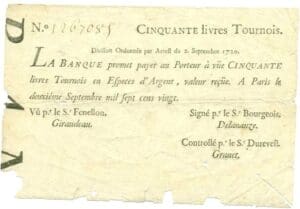 N.o 1267085 CINQUANTE livres Tournois.
Division Ordonnée par Arrest du 2. Septembre 1720.
LA BANQUE promet payer au Porteur à vüe CINQUANTE
livres Tournois en Especes d'Argent, valeur reçüe. A Paris le
deuxiéme Septembre mil sept cens vingt.
Vû p.r le S.r Fenellon. Signé p.r le S.r Bourgeois.
Giraudeau. Delanauze.
Controllé p.r le S.r Durevest.
Granet.